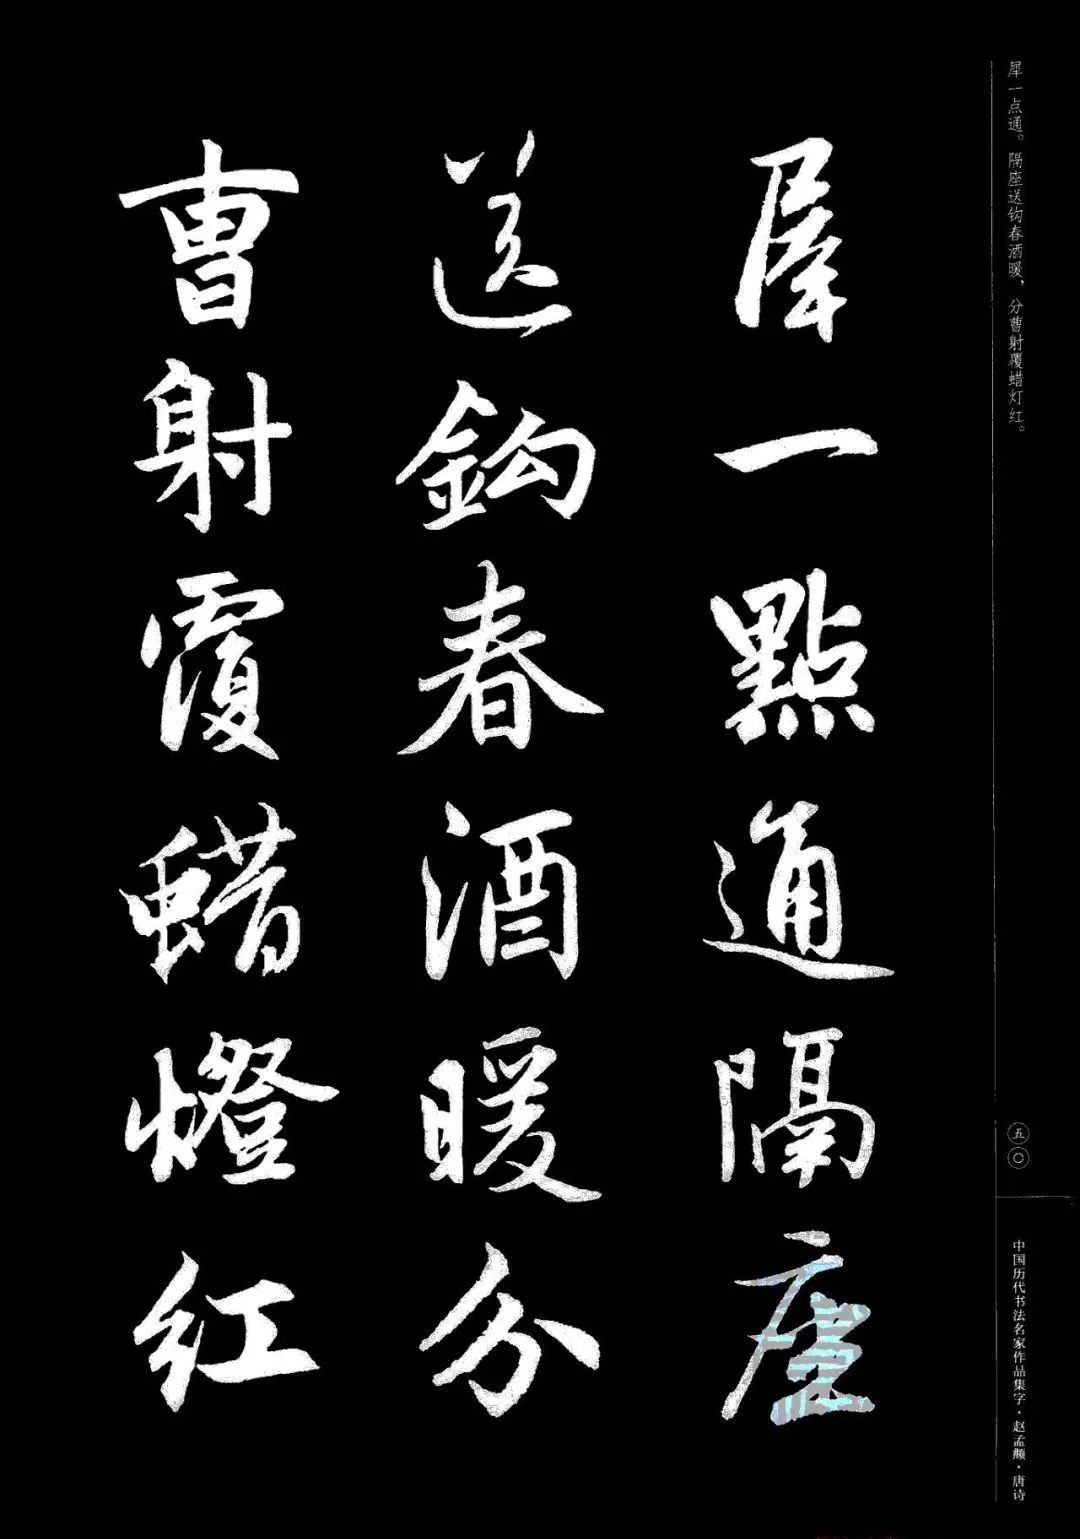 犀一点通。隔座送钩春酒暖，分曹射覆蜡灯红。
犀一點通隔座
送鈎春酒暖分
曹射覆蜡燈红
五〇
中国历代书法名家作品集字·赵孟頫·唐诗